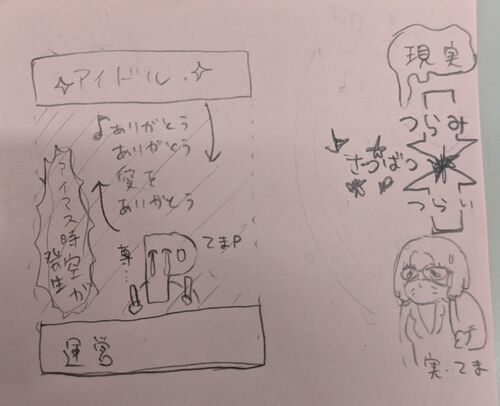 アイドル
♪ありがとう
ありがとう
愛を
ありがとう
アイマス時空が
発生
尊…
てまP
運営
現実
つらみ
さつばつ
つらい
実・てま